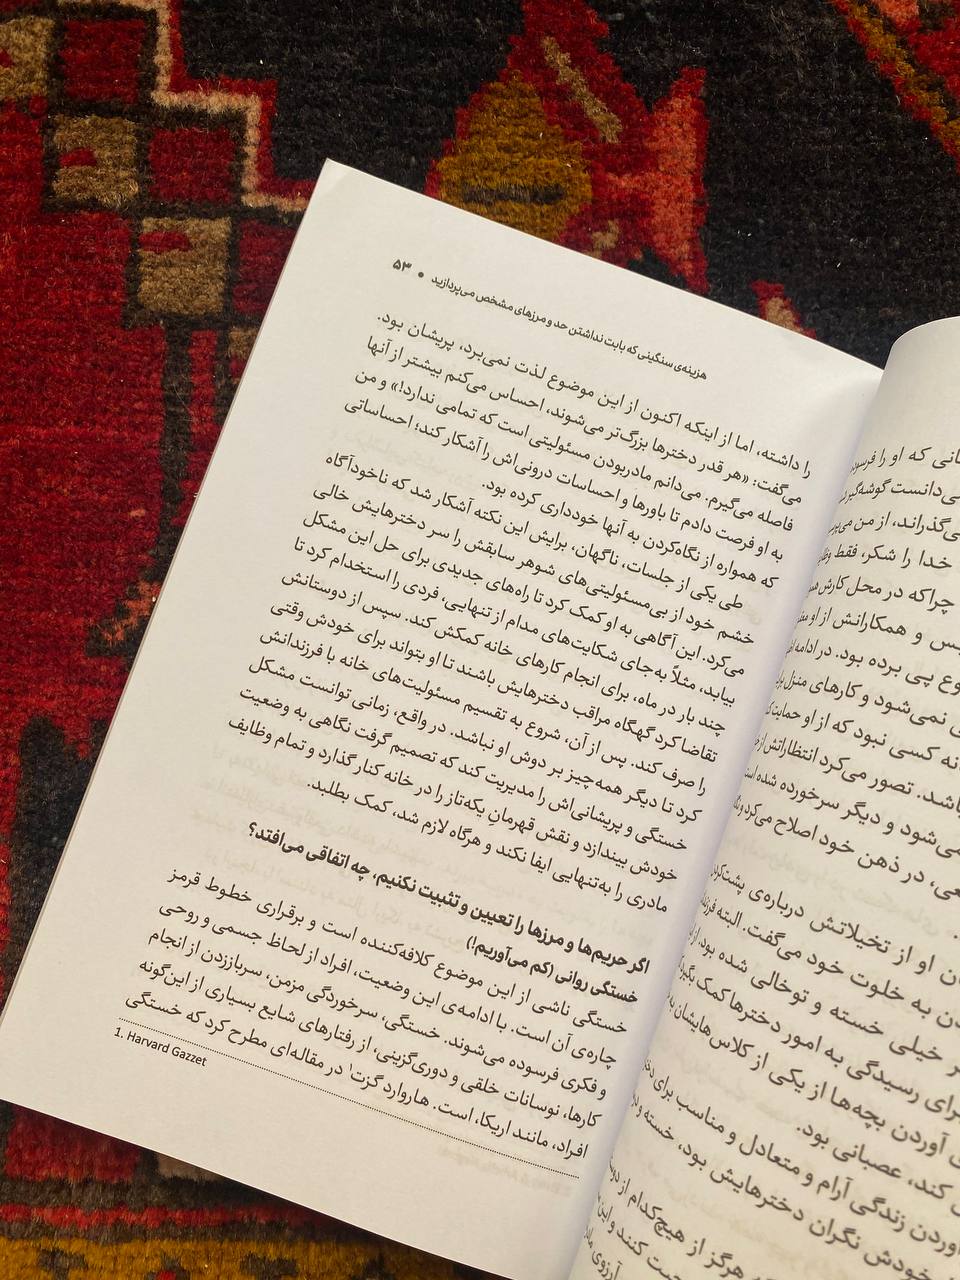 هزینه‌ی سنگینی که بابت نداشتن حد و مرزهای مشخص می‌پردازید • ۵۳
را داشته، اما از اینکه اکنون از این موضوع لذت نمی‌برد، پریشان بود.
می‌گفت: «هر قدر دخترها بزرگ‌تر می‌شوند، احساس می‌کنم بیشتر از آنها
فاصله می‌گیرم. می‌دانم مادربودن مسئولیتی است که تمامی ندارد!» و من
به او فرصت دادم تا باورها و احساسات درونی‌اش را آشکار کند؛ احساساتی
که همواره از نگاه‌کردن به آنها خودداری کرده بود.
طی یکی از جلسات، ناگهان، برایش این نکته آشکار شد که ناخودآگاه
خشم خود از بی‌مسئولیتی‌های شوهر سابقش را سر دخترهایش خالی
می‌کرد. این آگاهی به او کمک کرد تا راه‌های جدیدی برای حل این مشکل
بیابد، مثلاً به‌جای شکایت‌های مدام از تنهایی، فردی را استخدام کرد تا
چند بار در ماه، برای انجام کارهای خانه کمکش کند. سپس از دوستانش
تقاضا کرد گهگاه مراقب دخترهایش باشند تا او بتواند برای خودش وقتی
را صرف کند. پس از آن، شروع به تقسیم مسئولیت‌های خانه با فرزندانش
کرد تا دیگر همه‌چیز بر دوش او نباشد. در واقع، زمانی توانست مشکل
خستگی و پریشانی‌اش را مدیریت کند که تصمیم گرفت نگاهی به وضعیت
خودش بیندازد و نقش قهرمانِ یکه‌تاز را در خانه کنار گذارد و تمام وظایف
مادری را به‌تنهایی ایفا نکند و هرگاه لازم شد، کمک بطلبد.
اگر حریم‌ها و مرزها را تعیین و تثبیت نکنیم، چه اتفاقی می‌افتد؟
خستگی روانی (کم می‌آوریم!)
خستگی ناشی از این موضوع کلافه‌کننده است و برقراری خطوط قرمز
چاره‌ی آن است. با ادامه‌ی این وضعیت، افراد از لحاظ جسمی و روحی
و فکری فرسوده می‌شوند. خستگی، سرخوردگی مزمن، سرباززدن از انجام
کارها، نوسانات خلقی و دوری‌گزینی، از رفتارهای شایع بسیاری از این‌گونه
افراد، مانند اریکا، است. هاروارد گزت۱ در مقاله‌ای مطرح کرد که خستگی
1. Harvard Gazzet
که او را
می‌دانست
از من
خدا را شکر، فقط
چراکه در محل کارش
و همکارانش از او
پی برده بود. در ادامه
نمی‌شود و کارهای منزل
کسی نبود که از او حمایت
تصور می‌کرد انتظاراتش از
می‌شود و دیگر سرخورده شده
در ذهن خود اصلاح می‌کرد
او از تخیلاتش درباره‌ی
به خلوت خود می‌گفت. البته
خیلی خسته و توخالی شده بود.
رسیدگی به امور دخترها کمک
آوردن بچه‌ها از یکی از کلاس‌هایشان
کند، عصبانی بود.
زندگی آرام و متعادل و مناسب برای
خودش نگران دخترهایش بود، خسته و
هرگز از هیچ‌کدام از
کنند و این
آرزوی